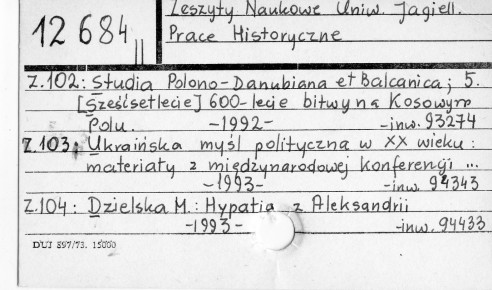 Zeszyty Naukowe Uniw. Jagiell.
12 684 II
Prace Historyczne
Z.102: Studia Polono-Danubiana et Balcanica; 5.
[Sześćsetlecie] 600-lecie bitwy na Kosowym
Polu. -1992- -inw. 93274
Z.103: Ukraińska myśl polityczna w XX wieku:
materiały z międzynarodowej konferencji ...
-1993- -inw. 94343
Z.104: Dzielska M.: Hypatia z Aleksandrii
-1993- -inw. 94433
DUJ 897/73. 15000